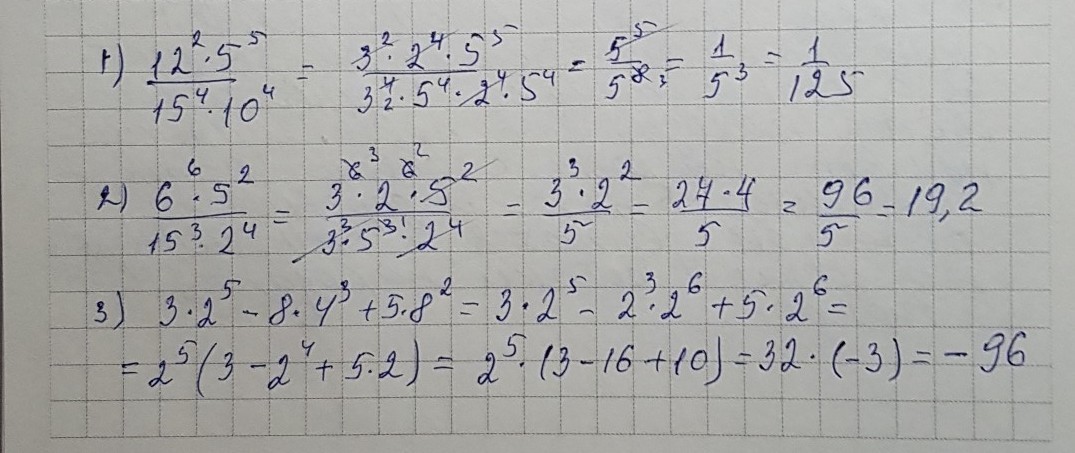 1) 12²·5⁵ / 15⁴·10⁴ = 3²·2⁴·5⁵ / 3⁴₂·5⁴·2⁴·5⁴ = 5⁵ / 5⁸₃ = 1/5³ = 1/125
2) 6⁶·5² / 15³·2⁴ = 3⁶ ³·2⁶ ²·5² / 3³·5³ ¹·2⁴ = 3³·2² / 5 = 27·4 / 5 = 96/5 = 19,2
3) 3·2⁵ - 8·4³ + 5·8² = 3·2⁵ - 2³·2⁶ + 5·2⁶ =
= 2⁵(3 - 2⁴ + 5·2) = 2⁵·(3 - 16 + 10) = 32·(-3) = -96